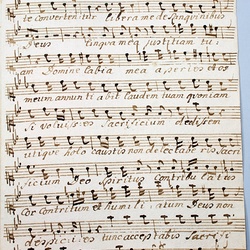 te convertentur libera me de sanguinibus
Deus lingua mea justitiam tu,
am Domine labia mea aperies et os
meum annunti abit laudem tuam quoniam
Si voluisses Sacrificium dedissem
utique holocaustis non delectabe ris Sacri
ficium Deo Spiritus Contribu latus
Cor contritum et humili atum Deus non
despicies tunc acceptabis Sacrifi